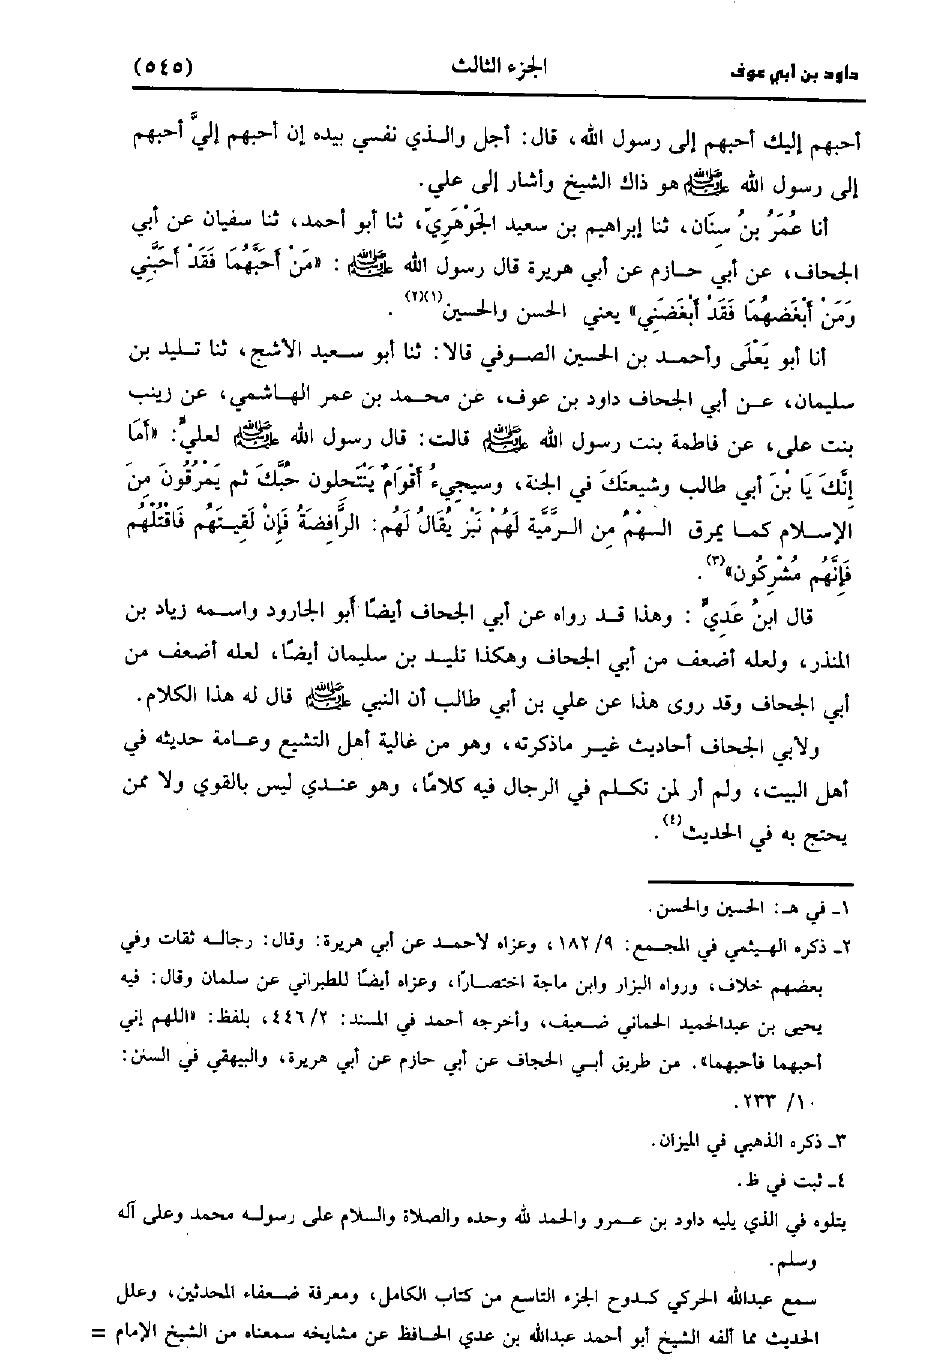 داود بن أبي عوف الجزء الثالث (٥٤٥)
أحبهم إليك أحبهم إلى رسول الله، قال: أجل والذي نفسي بيده إن أحبهم إليَّ أحبهم
إلى رسول الله ﷺ هو ذاك الشيخ وأشار إلى علي.
أنا عُمَرُ بنُ سِنَان، ثنا إبراهيم بن سعيد الجَوْهَرِيّ، ثنا أبو أحمد، ثنا سفيان عن أبي
الجحاف، عن أبي حازم عن أبي هريرة قال رسول الله ﷺ : «مَنْ أَحَبَّهُمَا فَقَدْ أَحَبَّنِي
وَمَنْ أَبْغَضهُمَا فَقَدْ أَبْغَضَنِي» يعني الحسن والحسين(١)(٢) .
أنا أبو يَعْلَى وأحمد بن الحسين الصوفي قالا: ثنا أبو سعيد الأشج، ثنا تليد بن
سليمان، عن أبي الجحاف داود بن عوف، عن محمد بن عمر الهاشمي، عن زينب
بنت علي، عن فاطمة بنت رسول الله ﷺ قالت: قال رسول الله ﷺ لعليٍّ: «أَمَا
إِنَّكَ يَا بْنَ أبي طالب وشيعتَكَ في الجنة، وسيجيءُ أَقْوَامٌ يَنْتَحلون حُبَّكَ ثم يَمْرُقُونَ مِنَ
الإسلام كما يمرق السهْمُ مِنَ الرَّمِّية لَهُمْ نَبَز يُقَالُ لَهُم: الرَّافِضَةُ فَإِنْ لَقِيتَهُم فَاقْتُلْهُم
فَإِنَّهُم مُشْرِكُون»(٣).
قال ابنُ عَدِيٍّ : وهذا قد رواه عن أبي الجحاف أيضًا أبو الجارود واسمه زياد بن
المنذر، ولعله أضعف من أبي الجحاف وهكذا تليد بن سليمان أيضًا، لعله أضعف من
أبي الجحاف وقد روى هذا عن علي بن أبي طالب أن النبي ﷺ قال له هذا الكلام.
ولأبي الجحاف أحاديث غير ماذكرته، وهو من غالية أهل التشيع وعامة حديثه في
أهل البيت، ولم أر لمن تكلم في الرجال فيه كلامًا، وهو عندي ليس بالقوي ولا ممن
يحتج به في الحديث(٤).
١ـ في هـ: الحسين والحسن.
٢ـ ذكره الهيثمي في المجمع: ٩/ ١٨٢، وعزاه لأحمد عن أبي هريرة: وقال: رجاله ثقات وفي
بعضهم خلاف، ورواه البزار وابن ماجة اختصارًا، وعزاه أيضًا للطبراني عن سلمان وقال: فيه
يحيى بن عبدالحميد الحماني ضعيف، وأخرجه أحمد في المسند: ٢/ ٤٤٦، بلفظ: «اللهم إني
أحبهما فأحبهما». من طريق أبي الحجاف عن أبي حازم عن أبي هريرة، والبيهقي في السنن:
١٠/ ٢٣٣.
٣ـ ذكره الذهبي في الميزان.
٤ـ ثبت في ظ.
يتلوه في الذي يليه داود بن عمرو والحمد لله وحده والصلاة والسلام على رسوله محمد وعلى آله
وسلم.
سمع عبدالله الحركي كدوح الجزء التاسع من كتاب الكامل، ومعرفة ضعفاء المحدثين، وعلل
الحديث مما ألفه الشيخ أبو أحمد عبدالله بن عدي الحافظ عن مشايخه سمعناه من الشيخ الإمام =